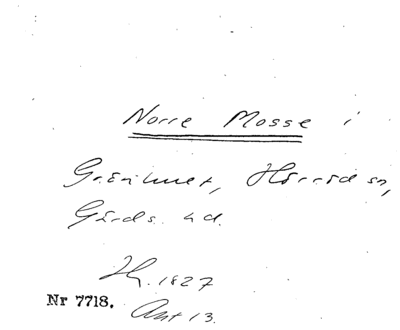 Norre Mosse i
Hörröd sn,
Gärds hd.
1827
Nr 7718.
Ant 13.